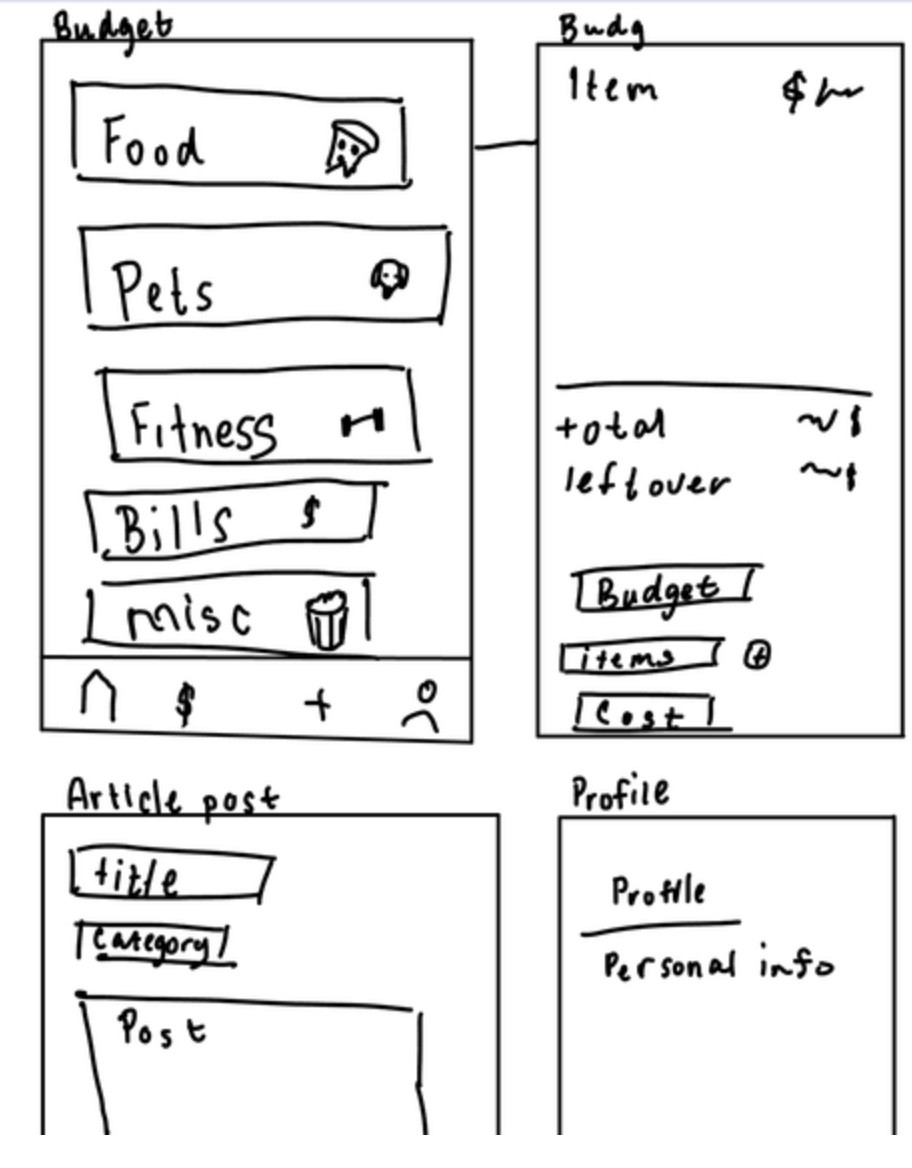 Budget
Food
Pets
Fitness
Bills $
misc
$ +
Budg
Item $
total $
leftover $
Budget
items +
Cost
Article post
title
Category
Post
Profile
Profile
Personal info